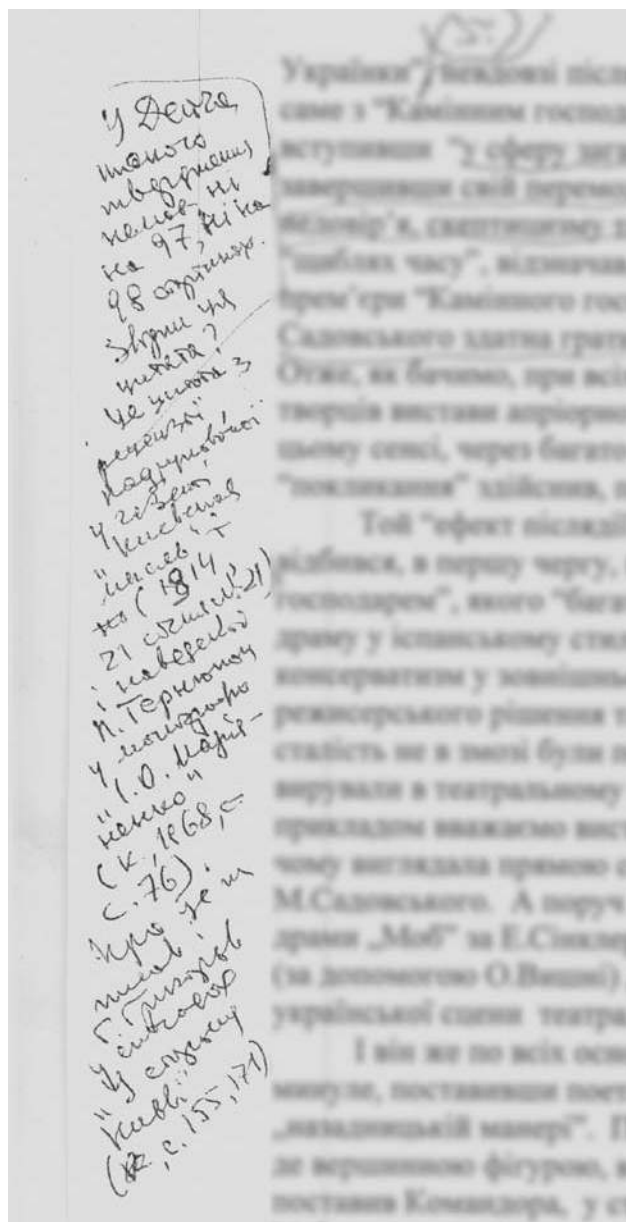 У Дейча
такого
твердження
немає ні
на 97, ні на
98 сторінках.
Звідки ця
цитата?
Це цитата з
рецензії
надрукованої
у газеті
"Киевская
мысль"
(1914,
21 січня, №21)
і наведеної
П. Тернюком
у монографії
"І. О. Мар'я-
ненко"
(К., 1968,
с. 76).
Про це ж
писав і
Г. Григор'єв
у спогадах
"У старому
Києві"
(К., с. 155, 171)
Українки", невдовзі після
саме з "Камінним господ
вступивши "у сферу зага
завершивши свій перемо
"щаблях часу", відзначав
прем'єри "Камінного гос
Садовського здатна грати
Отже, як бачимо, при всі
творців вистави апріорно
цьому сенсі, через багато
"покликання" здійснив, п
Той "ефект післядії
відбився, в першу чергу,
господарем", якого "бага
драму у іспанському стил
консерватизм у зовнішнь
режисерського рішення т
сталість не в змозі були п
вирували в театральному
прикладом вважаємо вист
чому виглядала прямою с
М.Садовського. А поруч
драми „Моб" за Е.Сінклер
(за допомогою О.Вишні)
української сцени театра
І він же по всіх осно
минуле, поставивши поет
де вершинною фігурою, в
поставив Командора, у с